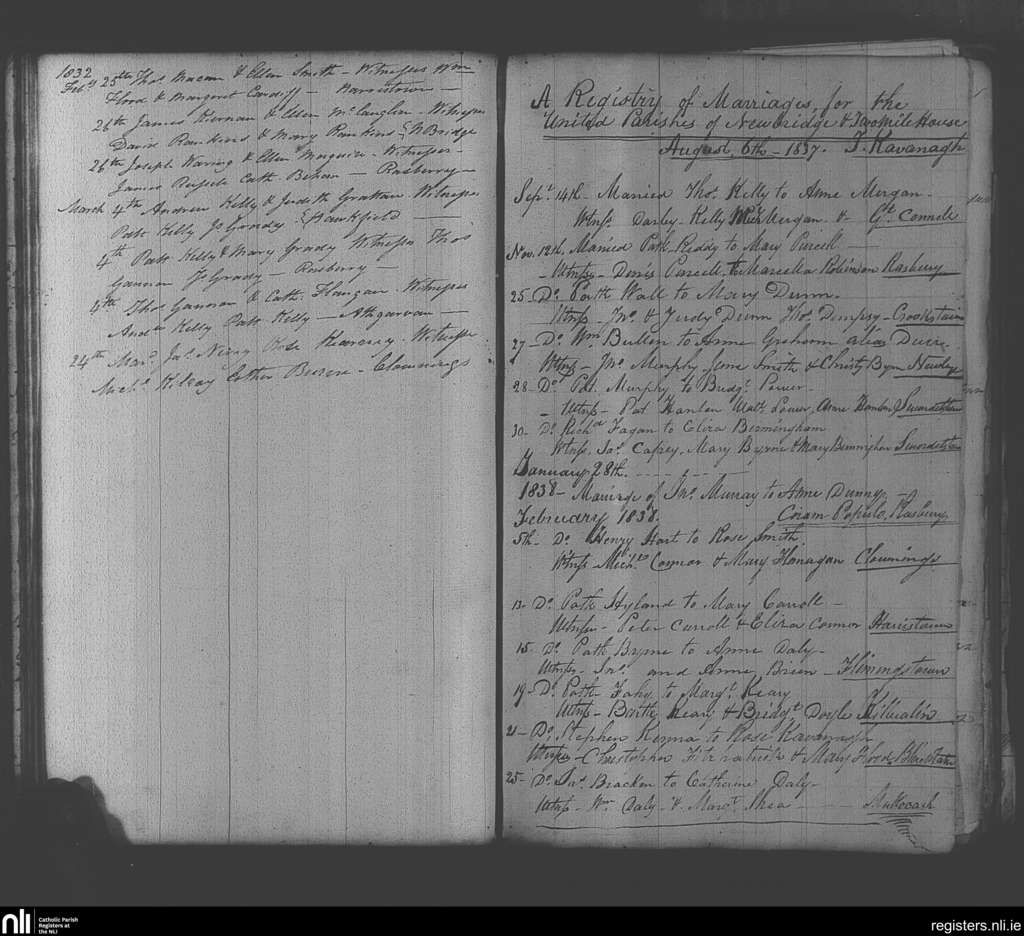 1832
Feby 25th Thos Macam & Ellen Smith - Witnesses Wm
Flood & Margaret Cardiff - Harristown -
26th James Kiernan & Ellen McLaughlin - Witnesses
David Rankins & Mary Rankins - NBridge
26th Joseph Waring & Ellen Maguire - Witnesses -
James Cath. Behan - Rosberry -
March 4th Andrew Kelly & Judith Grattan Witnesses
Patt Kelly Js Grady - Hawkfield -
4th Patt Kelly & Mary Grady Witnesses Thos
Gannon Js Grady - Rosberry -
4th Thos Gannon & Cath. Flangan - Witnesses
Andw Kelly Patt Kelly - Athgarvan -
24th Mard Jas Rose Witnesses
Michl Kilroy Esther - Clownings
A Registry of Marriages, for the
United Parishes of Newbridge & TwoMileHouse
August, 6th - 1837. T. Kavanagh
Sept 14th - Married Thos Kelly to Anne Mergan -
Witnss Darby Kelly Michl Mergan & Gt Connell
Nov. 12th, Married Patk Reddy to Mary Purcell -
- Witnss - Denis Purcell, & Marcella Robinson Rasbury
25 - Do Patk Wall to Mary Dunn.
Witnss - Jno & Judy Dunn Thos Dempsy - Crookstown
27 - Do Wm Bullen to Anne Grehorn alias
Witnss - Jno Murphy Jane Smith & Christy Byrn
28 - Do Pat. Murphy to Bridgt Power -
- Witnss - Pat Hanlan Walt. Power, Anne Swordstown
30 - Do Richd Fagan to Eliza Bermingham
Witnss, Jas Cafrey, Mary Byrne & Mary Bermingham Swordstown
January 28th.
1838 - Mariage of Jno Murray to Anne Dunny -
February 1838. Coram Populo, Rasbury
5th - Do Henry Hart to Rose Smith
Witnss Michl Connor & Mary Flanagan Clownings
13 - Do Patk Hyland to Mary Carroll -
Witnss - Peter Carroll & Eliza Connor Harristown
15 - Do Patk Byrne to Anne Daly -
Witnss - Jno and Anne Brien - Flemingstown
19 - Do Patk Fahy to Margt Keary
Witnss - Barth. Keary & Bridgt Doyle
21 - Do Stephen to Rose Kavanagh
Witnss - Christopher Fitzpatrick & Mary Flood,
25 - Do Jas Bracken to Catherine Daly -
Witnss - Wm Daly & Margt Shea -
nli
Catholic Parish
Registers at
the NLI
registers.nli.ie